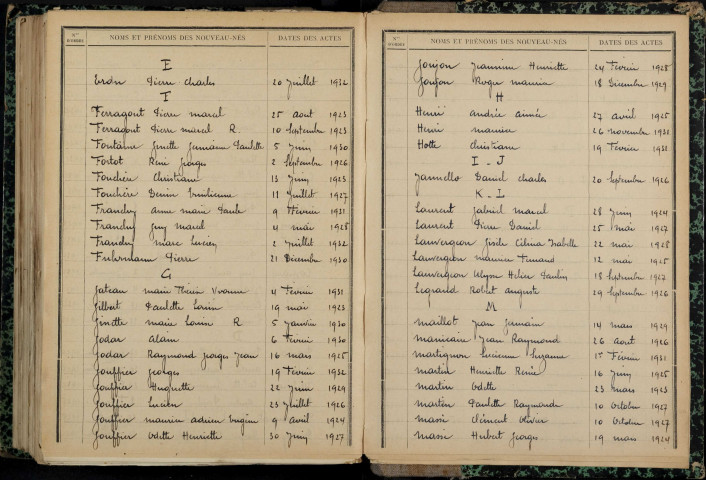 Nos D'ORDRE NOMS ET PRÉNOMS DES NOUVEAU-NÉS DATES DES ACTES
E
Erdn Pierre Charles 20 Juillet 1932
F
Ferragout Pierre marcel 25 aout 1923
Ferragout Pierre marcel R. 10 Septembre 1923
Fontaine Ginette Germaine Paulette 5 Juin 1930
Fortot René Georges 2 Septembre 1926
Fouchère Christiane 13 Juin 1923
Fouchère Denise 11 Juillet 1927
Frandry anne marie Paule 9 Février 1931
Frandry Guy marcel 4 mai 1928
Frandry marc Lucien 2 Juillet 1932
Fuhrmann Pierre 21 Décembre 1930
G
Gateau marie Thérèse Yvonne 4 Février 1931
Gilbert Paulette Louise 19 mai 1923
Ginette marie Louise R 5 Janvier 1930
Godar alain 6 Février 1930
Godar Raymond Georges Jean 16 mars 1925
Gouffier Georges 19 Février 1932
Gouffier Huguette 22 Juin 1929
Gouffier Lucien 23 Juillet 1926
Gouffier maurice adrien Eugène 9 avril 1924
Gouffier Odette Henriette 30 Juin 1927
Nos D'ORDRE NOMS ET PRÉNOMS DES NOUVEAU-NÉS DATES DES ACTES
Goujon Jeannine Henriette 24 Février 1928
Goujon Roger maurice 18 Décembre 1929
H
Henri andrée aimée 27 avril 1925
Henri maurice 26 novembre 1931
Hotte Christiane 19 Février 1931
I - J
Jannello Daniel Charles 20 Septembre 1926
K - L
Laurent Gabriel marcel 28 Juin 1924
Laurent Pierre Daniel 25 mai 1927
Lauvergeon Gisèle Célina Isabelle 22 mai 1928
Lauvergeon maurice Fernand 12 mai 1925
Lauvergeon Ulysse Hélier Paulin 18 Septembre 1927
Legrand Robert auguste 29 Septembre 1926
M
maillot Jean Germain 14 mars 1929
manicaire Jean Raymond 26 aout 1926
martignon Lucienne Suzanne 1er Février 1931
martin Henriette Renée 16 Juin 1925
martin Odette 23 mars 1923
martin Paulette Raymonde 10 Octobre 1927
massé Clément Olivier 10 Octobre 1927
masse Hubert Georges 19 mars 1924